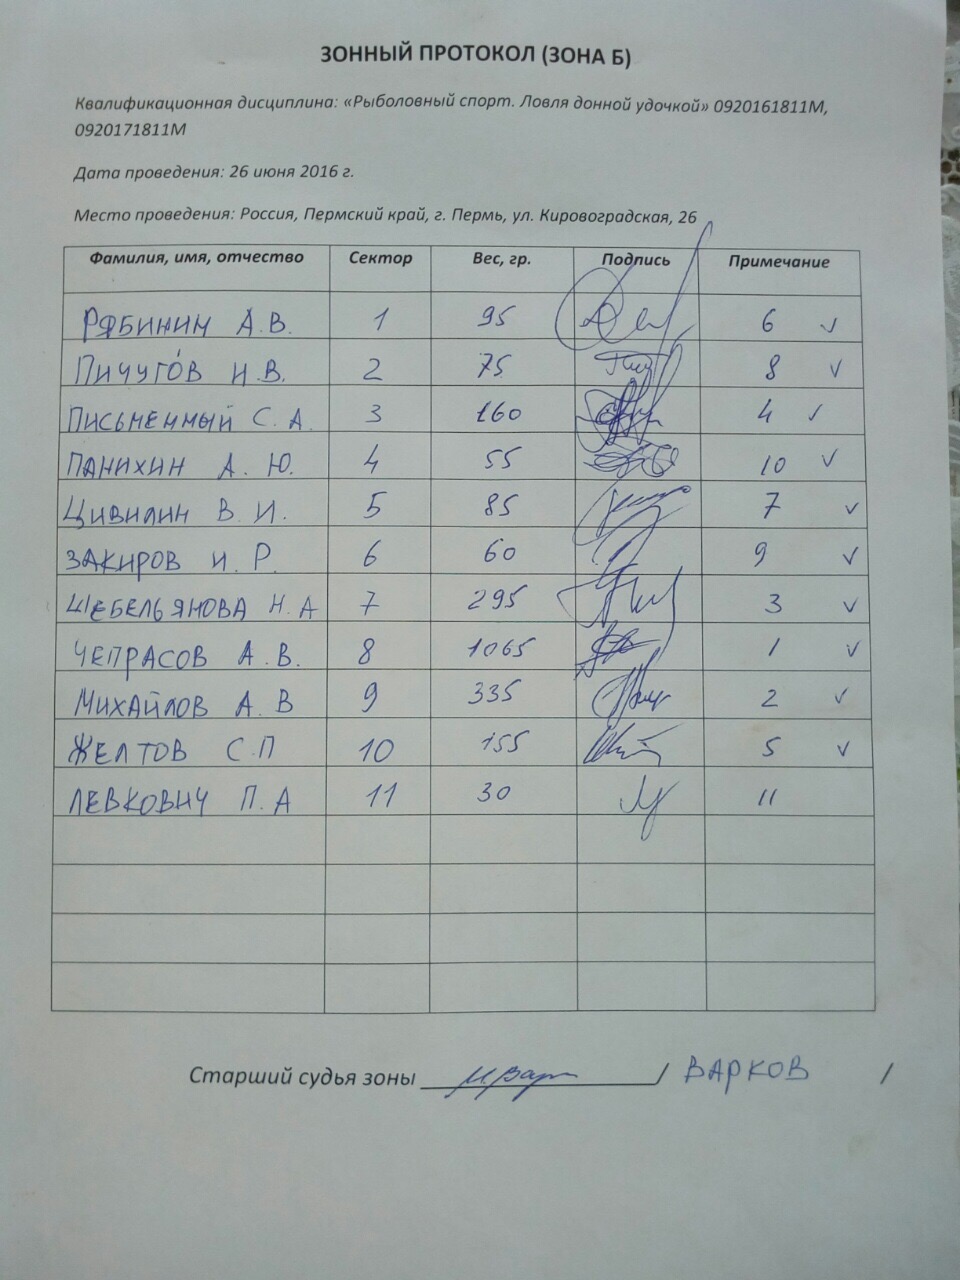 ЗОННЫЙ ПРОТОКОЛ (ЗОНА Б)
Квалификационная дисциплина: «Рыболовный спорт. Ловля донной удочкой» 0920161811М,
0920171811М
Дата проведения: 26 июня 2016 г.
Место проведения: Россия, Пермский край, г. Пермь, ул. Кировоградская, 26
Фамилия, имя, отчество Сектор Вес, гр. Подпись Примечание
РЯБИНИН А.В. 1 95 6 ✓
ПИЧУГОВ И.В. 2 75 8 ✓
ПИСЬМЕННЫЙ С.А. 3 160 4 ✓
ПАНИХИН А.Ю. 4 55 10 ✓
ЦИВИЛИН В.И. 5 85 7 ✓
ЗАКИРОВ И.Р. 6 60 9 ✓
ЩЕБЕЛЬЯНОВА Н.А 7 295 3 ✓
ЧЕПРАСОВ А.В. 8 1065 1 ✓
МИХАЙЛОВ А.В 9 335 2 ✓
ЖЕЛТОВ С.П 10 155 5 ✓
ЛЕВКОВИЧ П.А 11 30 11
Старший судья зоны / ВАРКОВ /